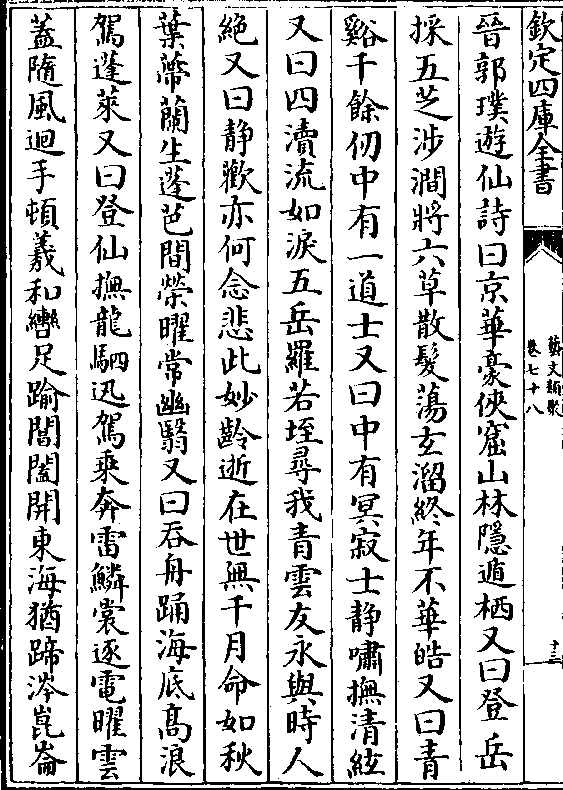 欽定四庫全書
藝文類聚
卷七十八
十三
晉郭璞遊仙詩曰京華豪俠窟山林隱遁栖又曰登岳
採五芝涉澗將六草散髮蕩玄溜終年不華皓又曰青
谿千餘仞中有一道士又曰中有冥寂士静嘯撫清絃
又曰四瀆流如淚五岳羅若垤尋我青雲友永與時人
絶又曰静歎亦何念悲此妙齡逝在世無千月命如秋
葉蔕蘭生蓬芭間榮曜常幽翳又曰吞舟踊海底高浪
駕蓬萊又曰登仙撫龍駟迅駕乘奔雷鱗裳逐電曜雲
葢隨風迴手頓羲和轡足踰閶闔開東海猶蹄涔崑崙